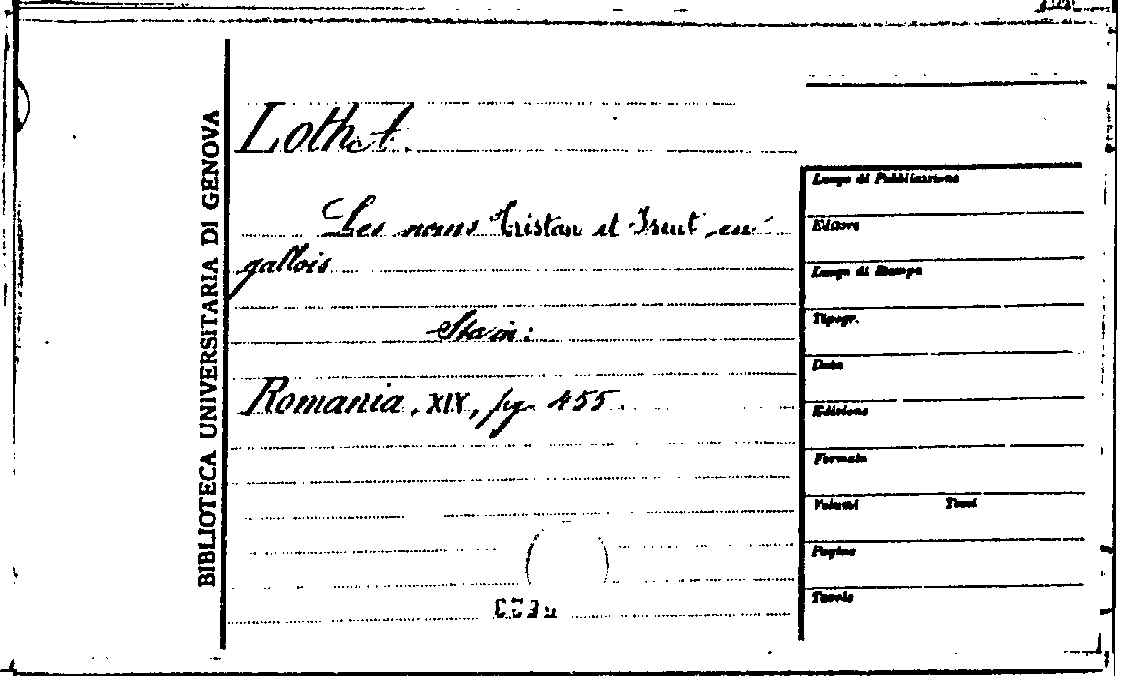 BIBLIOTECA UNIVERSITARIA DI GENOVA
Loth A.
Les noms Tristan et Iseut en
gallois
Sta in:
Romania, XIX, pg. 455.
Luogo di Pubblicazione
Editore
Luogo di Stampa
Tipogr.
Data
Edizione
Formato
Volumi Tomi
Pagine
Tavole